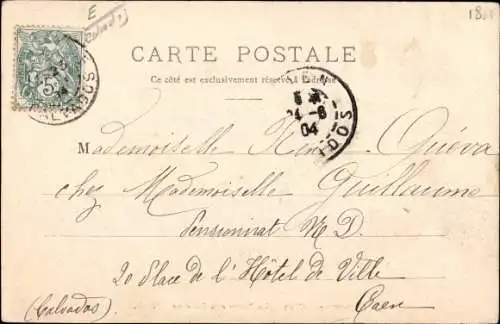 E
Calvados
CARTE POSTALE
Ce côté est exclusivement réservé à l'adresse
5
CALVADOS
CAEN
24-6
04
ADOS
Mademoiselle
chez Mademoiselle Guillaume
Pensionnat N. D.
20 Place de l'Hôtel de Ville
(Calvados) Caen